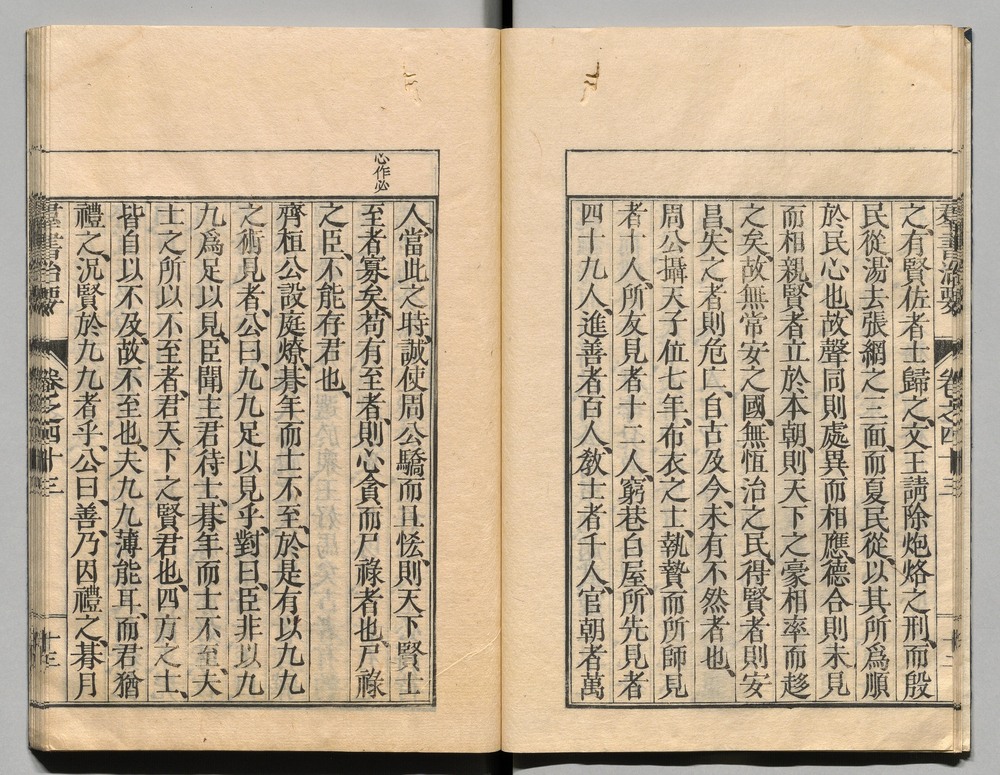 羣書治要 卷之四十三 十二
之、有賢佐者、士歸之、文王請除炮烙之刑、而殷
民從、湯去張網之三面、而夏民從、以其所爲順
於民心也、故聲同則處異而相應、德合則未見
而相親、賢者立於本朝、則天下之豪相率而趍
之矣、故無常安之國、無恆治之民、得賢者則安
昌、失之者則危亡、自古及今、未有不然者也、
周公攝天子位七年、布衣之士、執贄而所師見
者十人、所友見者十二人、窮巷白屋、所先見者
四十九人、進善者百人、敎士者千人、官朝者萬
心作必
人、當此之時、誠使周公驕而且恡、則天下賢士
至者寡矣、苟有至者、則心貪而尸祿者也、尸祿
之臣、不能存君也、
齊桓公設庭燎、朞年而士不至、於是有以九九
之術見者、公曰、九九足以見乎、對曰、臣非以九
九爲足以見、臣聞主君待士、朞年而士不至、夫
士之所以不至者、君天下之賢君也、四方之士、
皆自以不及、故不至也、夫九九薄能耳、而君猶
禮之、況賢於九九者乎、公曰、善、乃因禮之、朞月
羣書治要 卷之四十三 十三